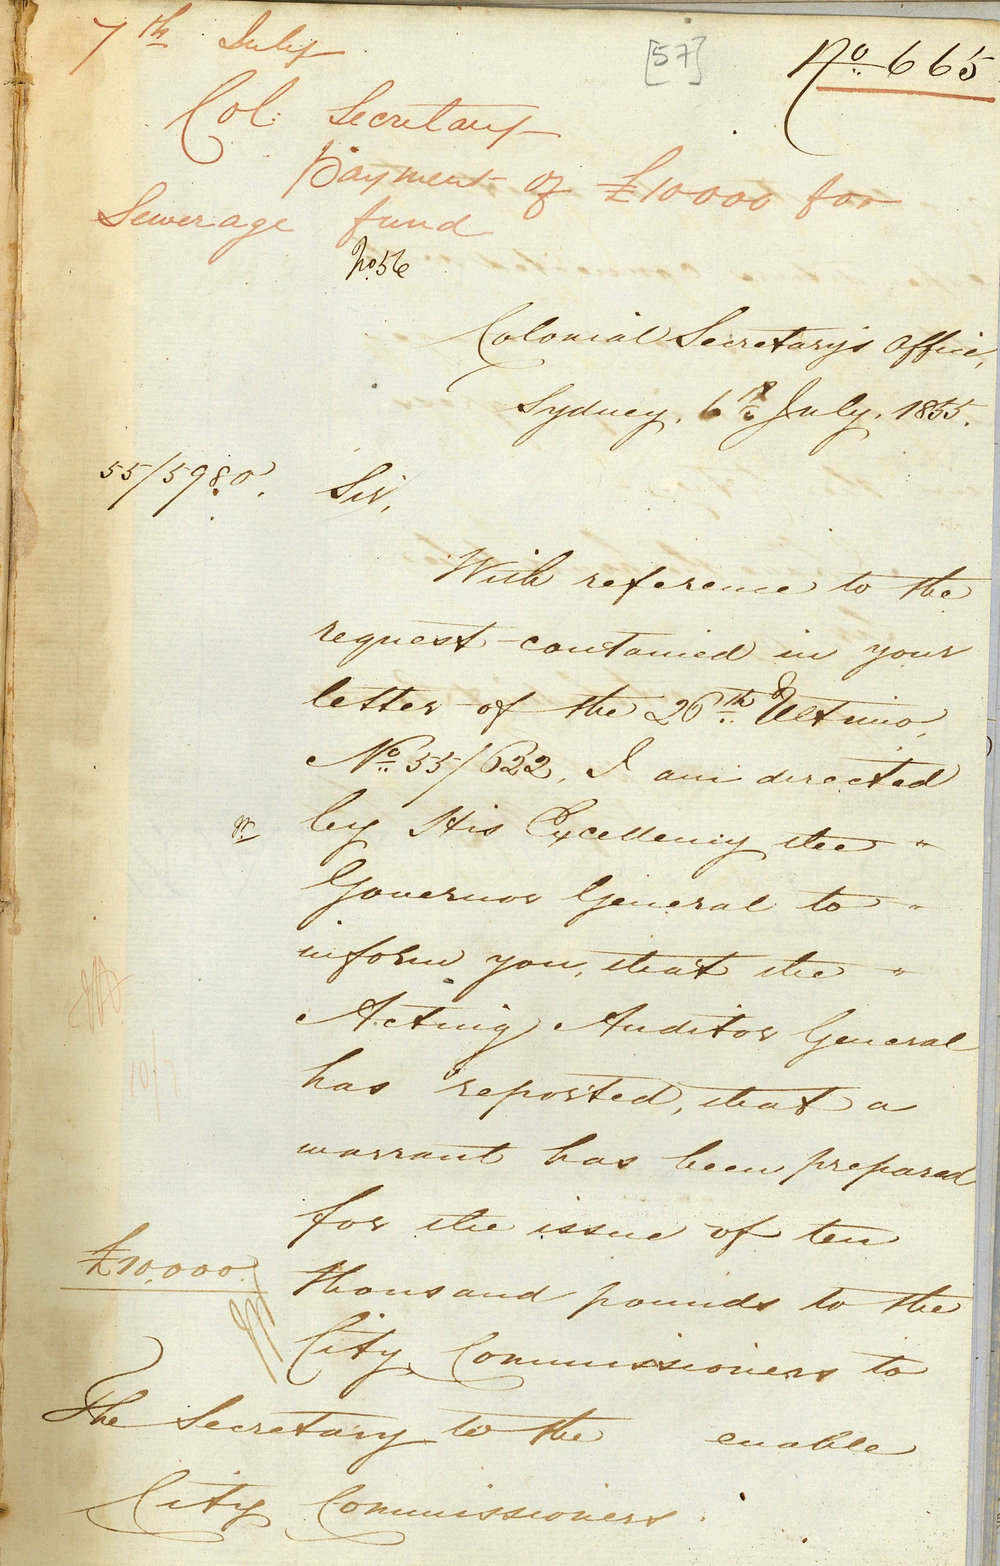 7th July
[57]
No. 665
Col: Secretary
Payment of £10000 for
Sewerage fund
No 56
Colonial Secretary's Office,
Sydney, 6th July, 1855.
55/5980.
Sir,
With reference to the
request contained in your
letter of the 26th Ultimo,
No. 55/622, I am directed
by His Excellency the "
Governor General to "
inform you, that the "
Acting Auditor General
has reported, that a
warrant has been prepared
for the issue of ten
£10,000.
thousand pounds to the
City Commissioners to
enable
The Secretary to the
City Commissioners.